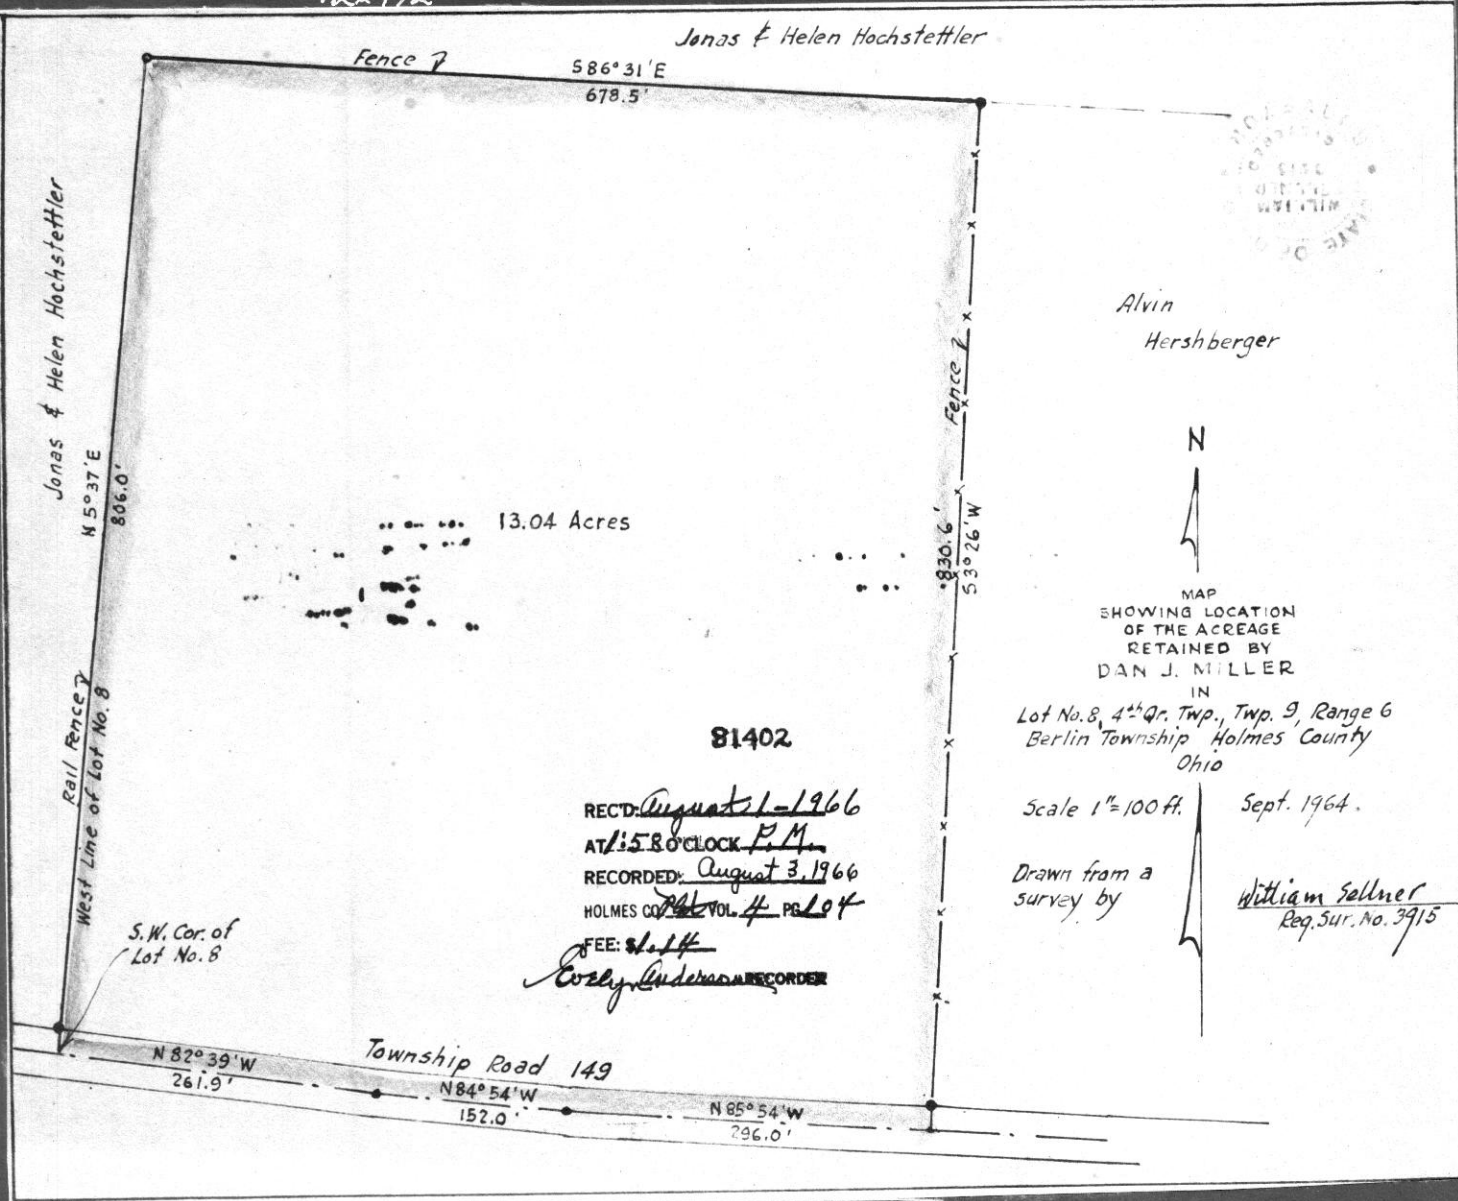 Jonas & Helen Hochstettler
Fence
S86°31'E
678.5'
Jonas & Helen Hochstettler
N5°37'E
806.0'
Rail Fence
West Line of Lot No. 8
Alvin
Hershberger
Fence
830.6'
S3°26'W
13.04 Acres
N
MAP
SHOWING LOCATION
OF THE ACREAGE
RETAINED BY
DAN J. MILLER
IN
Lot No. 8, 4th Qr. Twp., Twp. 9, Range 6
Berlin Township Holmes County
Ohio
Scale 1"=100 ft.
Sept. 1964.
Drawn from a
survey by
William Sellner
Reg. Sur. No. 3915
81402
REC'D: August 1-1966
AT 1:58 O'CLOCK P.M.
RECORDED: August 3, 1966
HOLMES CO. Plat VOL. 4 PG 104
FEE: $1.14
Evelyn Anderson RECORDER
S.W. Cor. of
Lot No. 8
Township Road 149
N82°39'W
261.9'
N84°54'W
152.0'
N85°54'W
296.0'